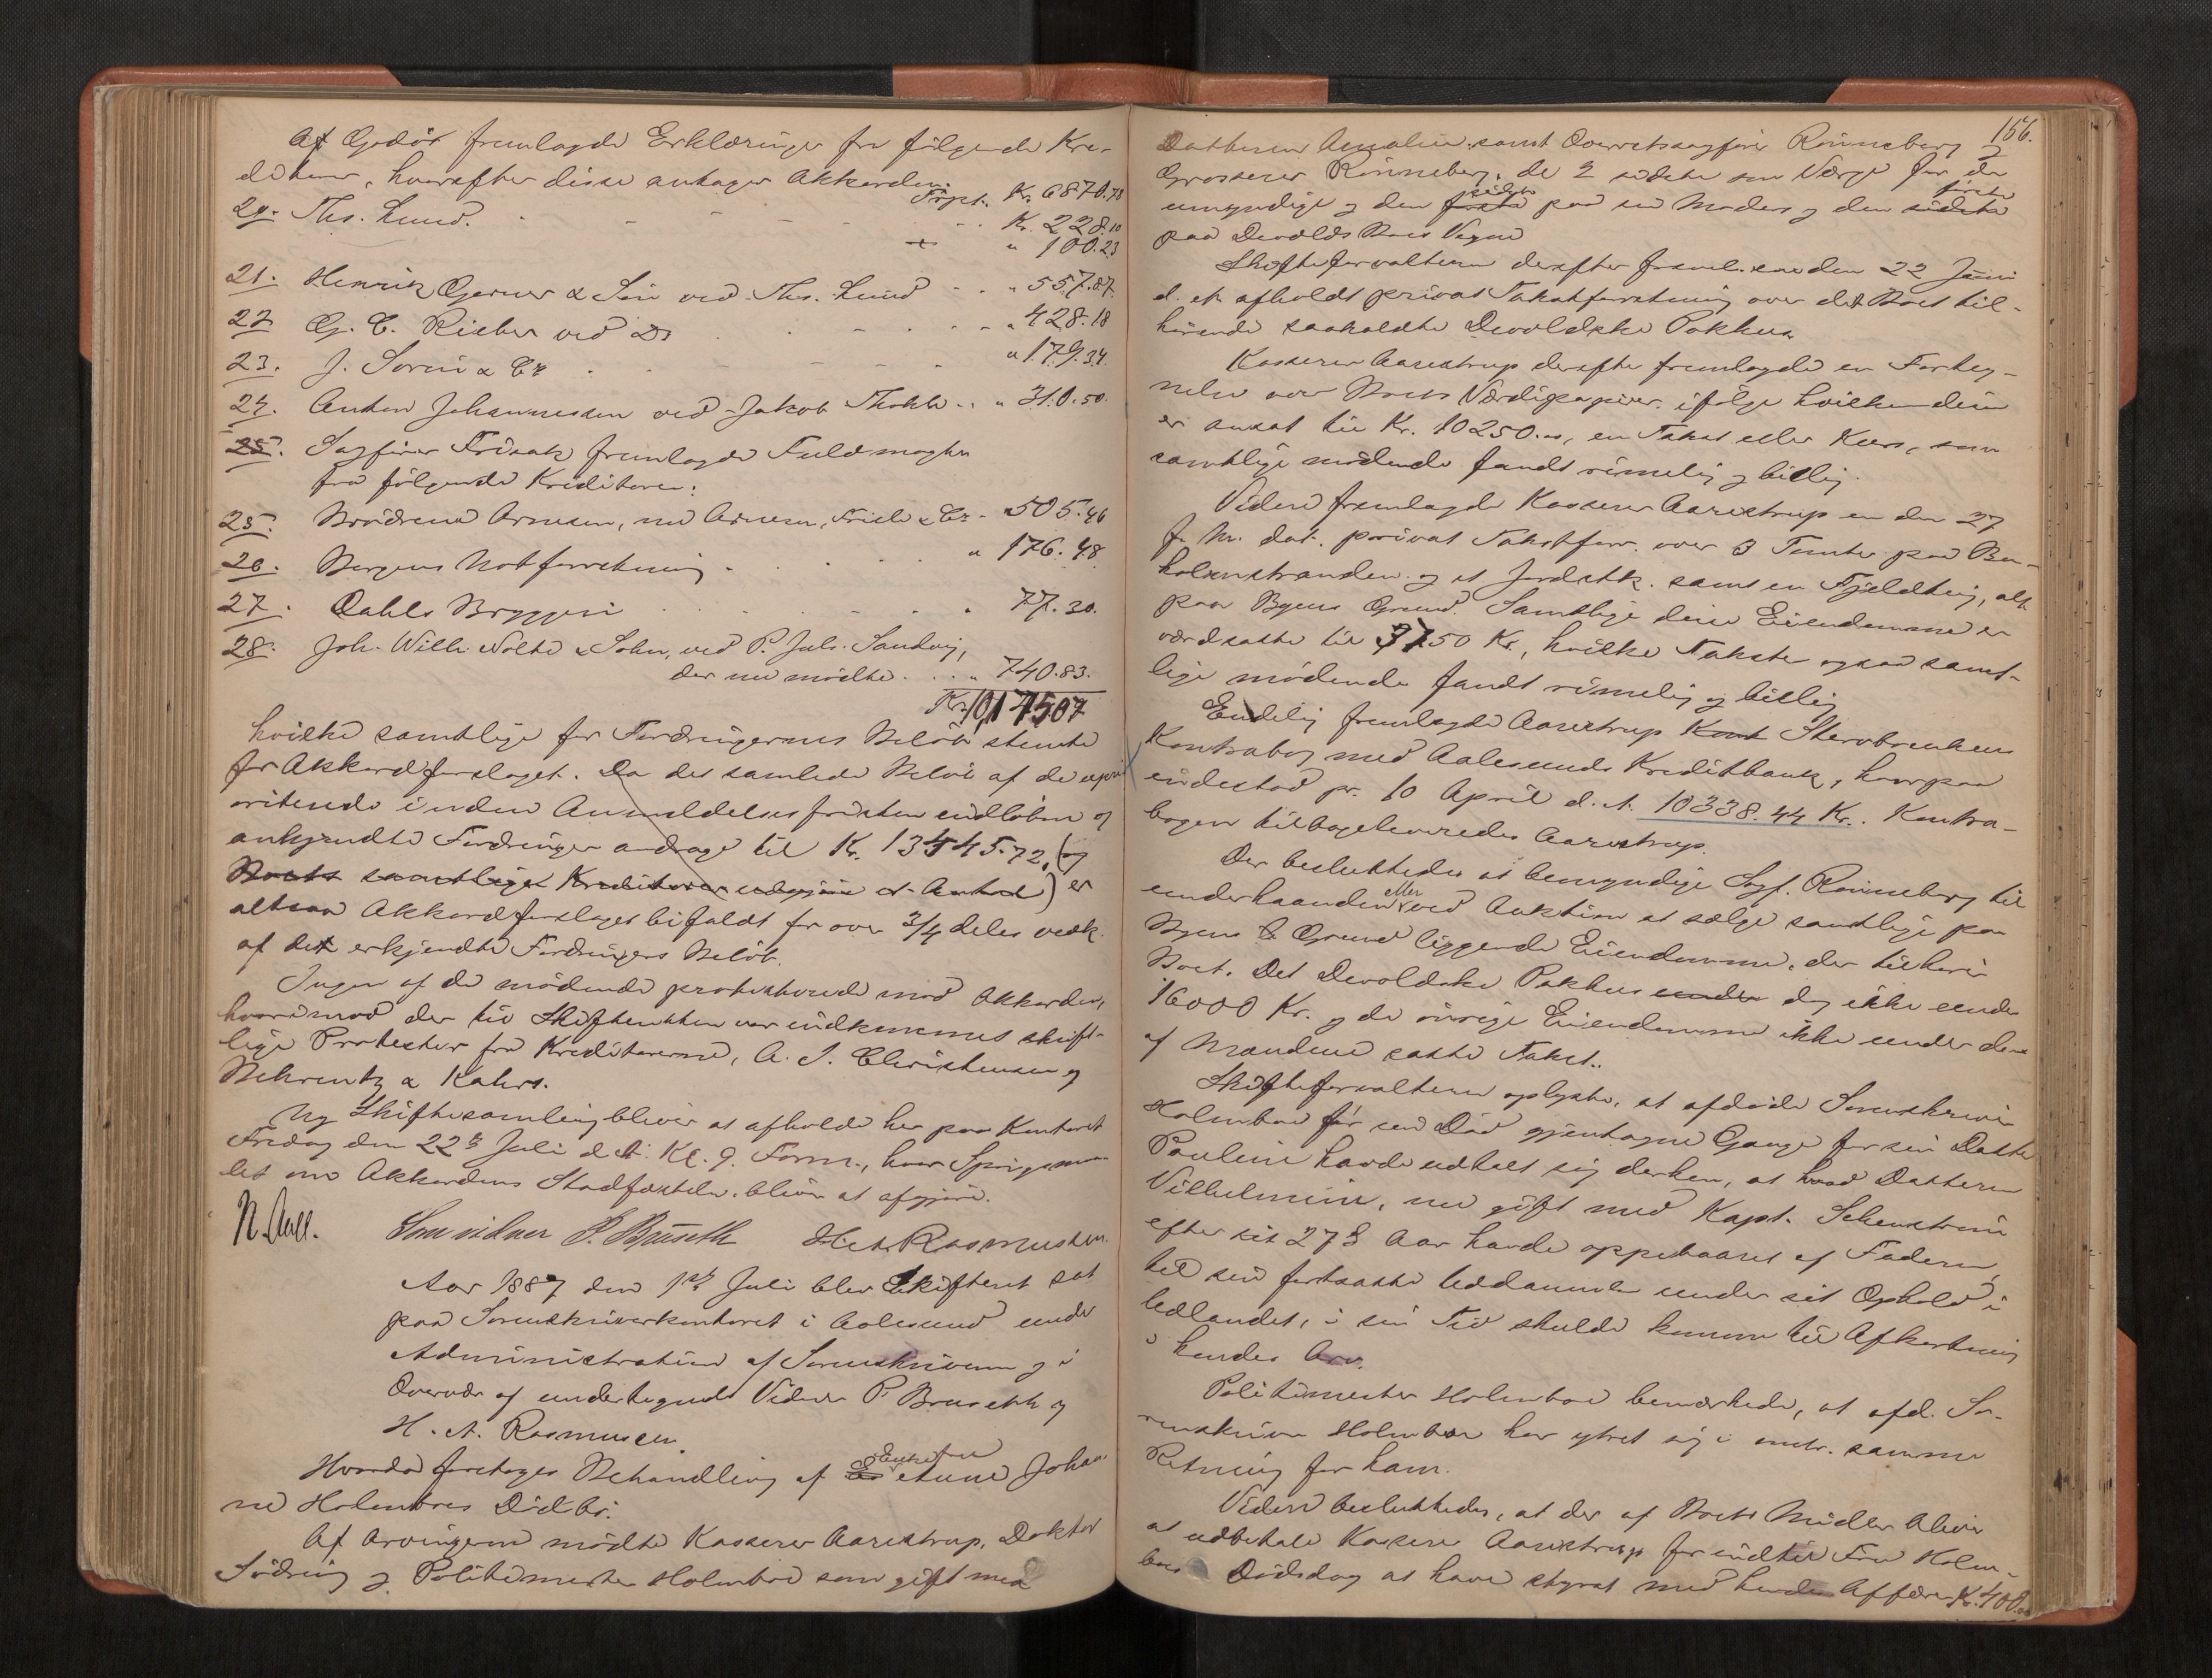 Af Gjedör fremlagde Erklæringer fra følgende Kre-
ditorer, hvorefter disse antager Akkorden:
Trspt. Kr. 6870.78
20. Ths. Lund. Kr. 228.10
" 100.23
21. Henrik Gerner & Sön ved Ths. Lund " 557.87.
22. G. C. Rieber ved Do " 428.18
23. J. Sorein & Co " 179.34
24. Anton Johannessen ved Jakob " 310.50.
25. Sagförer Frisak fremlagde Fuldmagter
fra følgende Kreditorer:
25. Brödrene Arnesen, nu Arnesen, & Co " 505.46
26. Bergens Notforretning " 176.48
27. Dahls Bryggeri " 77.30.
28. Joh. Wilh. Nolte & Sohn, ved P. Juls. Sandvig,
der nu mödte " 740.83.
Kr. 10,174507
hvilke samtlige for Fordringernes Belöb stemte
for Akkordforslaget. Da det samlede Belöb af de upri
oriterede inden Anmeldelsesfristen indløbne og
ankjendte Fordringer andrage til Kr. 13445.72, (og
Boets samtlige Kreditorer udgjöre et Antal) er
altsaa Akkordforslaget bifaldt for over 3/4 deles vedk.
af det erkjendte Fordringers Belöb.
Ingen af de mödende protesterede mod Akkorden,
hvorimod der til Skifteretten var indkommet skrift-
lige Protester fra Kreditorerne, A. S. Christensen og
Behrentz & Kahrs.
Ny Skiftesamling bliver at afholde her paa Kontoret
Fredag den 22de Juli d. A. Kl. 9. Form., hvor Spörgsmaa-
let om Akkordens Stadfæstelse bliver at afgjöre.
N. Aall. Som vidner P. Brusetth H. A. Rasmussen.
Aar 1887 den 1ste Juli blev Skifteret sat
paa Sorenskriverkontoret i Aalesund under
Administration af Sorenskriveren og i
Overvær af undertegnede Vidner P. Brusetth og
H. A. Rasmussen.
Hvorda foretoges Behandling af Enkefru Anne Johan
ne Holmboes Dödbo.
Af Arvingerne mödte Kasserer Aarestrup, Doktor
Södring og Politimester Holmboe som gift med
156.
Datteren Amalie samt Overretssagförer Rönneberg og
Grosserer Rönneberg, de 2 sidste som Værge for de
umyndige og den første sidste paa sin Moders og den sidste første
paa Devolds Boes Vegne
Skifteforvalteren derefter freml. en den 22 Juni
d. A. afholdt privat Takstforretning over det Boet til-
hörende saakaldte Devoldske Pakhus.
Kasserer Aarestrup derefter fremlagde en Forteg-
nelse over Boets Værdipapirer, ifølge hvilken disse
er ansat til Kr. 10250.00, en Takst eller Kurs, som
samtlige mödende fandt rimelig og billig.
Videre fremlagde Kasserer Aarestrup en den 27
f. M. dat. privat Takstforr. over 3 Tomter paa Bu-
holmstranden og et Jordstk. samt en Fjeldteig, alt
paa Byens Grund. Samtlige disse Eiendomme er
værdsatte til 3750 Kr., hvilke Takster ogsaa samt-
lige mödende fandt rimelig og billig
Endelig fremlagde Aarestrup Kont Stervboenkens
Kontrabog med Aalesunds Kreditbank, hvorpaa
indestod pr. 10 April d. A. 10338.44 Kr. Kontra-
bogen tilbageleveredes Aarestrup.
Der besluttedes at bemyndige Sagf. Rönneberg til
underhaanden eller ved Auktion at sælge samtlige paa
Byens Grund liggende Eiendomme, der tilhører
Boet. Det Devoldske Pakhus under dog ikke under
16000 Kr. og de øvrige Eiendomme ikke under den
af Mændene satte Takst.
Skifteforvalteren oplyste, at afdöde Sorenskriver
Holmboe för sin Död gjentagne Gange for sin Datter
Pauline havde udtalt sig derhen, at hvad Datteren
Vilhelmine, nu gift med Kapt. Schenström
efter sit 27de Aar havde oppebaaret af Faderen
til sin fortsatte Uddannelse under sit Ophold i
Udlandet, i sin Tid skulde komme til Afkortning
i hendes Arv.
Politimester Holmboe bemærkede, at afd. So-
renskriver Holmboe har ytret sig i omtr. samme
Retning for ham.
Videre besluttedes, at der af Boets Midler bliver
at udbetale Kasserer Aarestrup for indtil Fru Holm-
boes Dödsdag at have styret med hendes Affærer Kr. 400.00